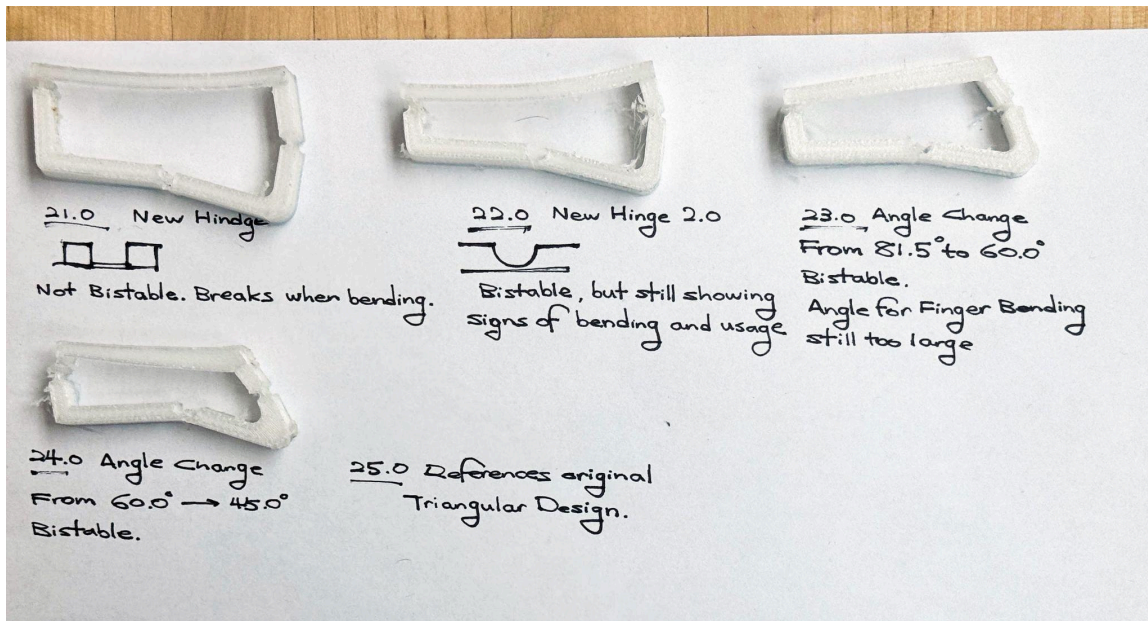 21.0 New Hindge
Not Bistable. Breaks when bending.
22.0 New Hinge 2.0
Bistable, but still showing
signs of bending and usage
23.0 Angle Change
From 81.5° to 60.0°
Bistable.
Angle for Finger Bending
still too large
24.0 Angle Change
From 60.0° → 45.0°
Bistable.
25.0 References original
Triangular Design.